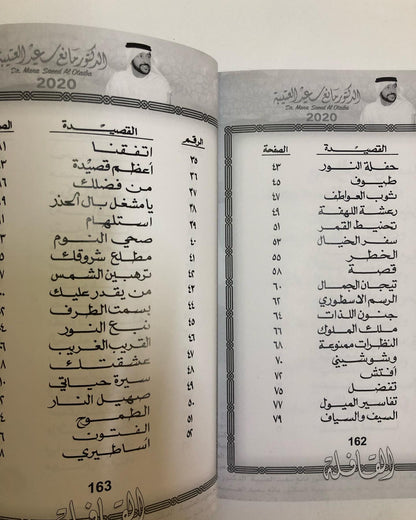 الدكتور مانع سعيد العتيبة
2020
القصيدة الصفحة
حفلة النور ٤٣
طيوف ٤٥
ثوب العواطف ٤٧
رعشة اللهفة ٤٩
تحنيط القمر ٥١
سفر الخيال ٥٣
الخطر ٥٥
قصة ٥٨
تيجان الجمال ٦٠
الرسم الاسطوري ٦٢
جنون اللذات ٦٤
ملك الملوك ٦٦
النظرات ممنوعة ٦٨
وشوشيني ٧٠
أفتش ٧٢
تفضل ٧٥
تفاسير الميول ٧٧
السيف والسياف ٧٩
162
القافلة
الدكتور مانع سعيد العتيبة
Dr. Mana Saeed Al Otaiba
2020
الرقم القصيدة
٣٥ اتفقنا
٣٦ أعظم قصيدة
٣٧ من فضلك
٣٨ يا مشغل بال الحذر
٣٩ استلهام
٤٠ صحي النوم
٤١ مطلع شروقك
٤٢ ترهبين الشمس
٤٣ من يقدر عليك
٤٤ بسمت الظرف
٤٥ نبع النور
٤٦ القريب الغريب
٤٧ عشقتك
٤٨ سيرة حياتي
٤٩ صهيل النار
٥٠ الطموح
٥١ الفنون
٥٢ أساطيري
163
القافلة